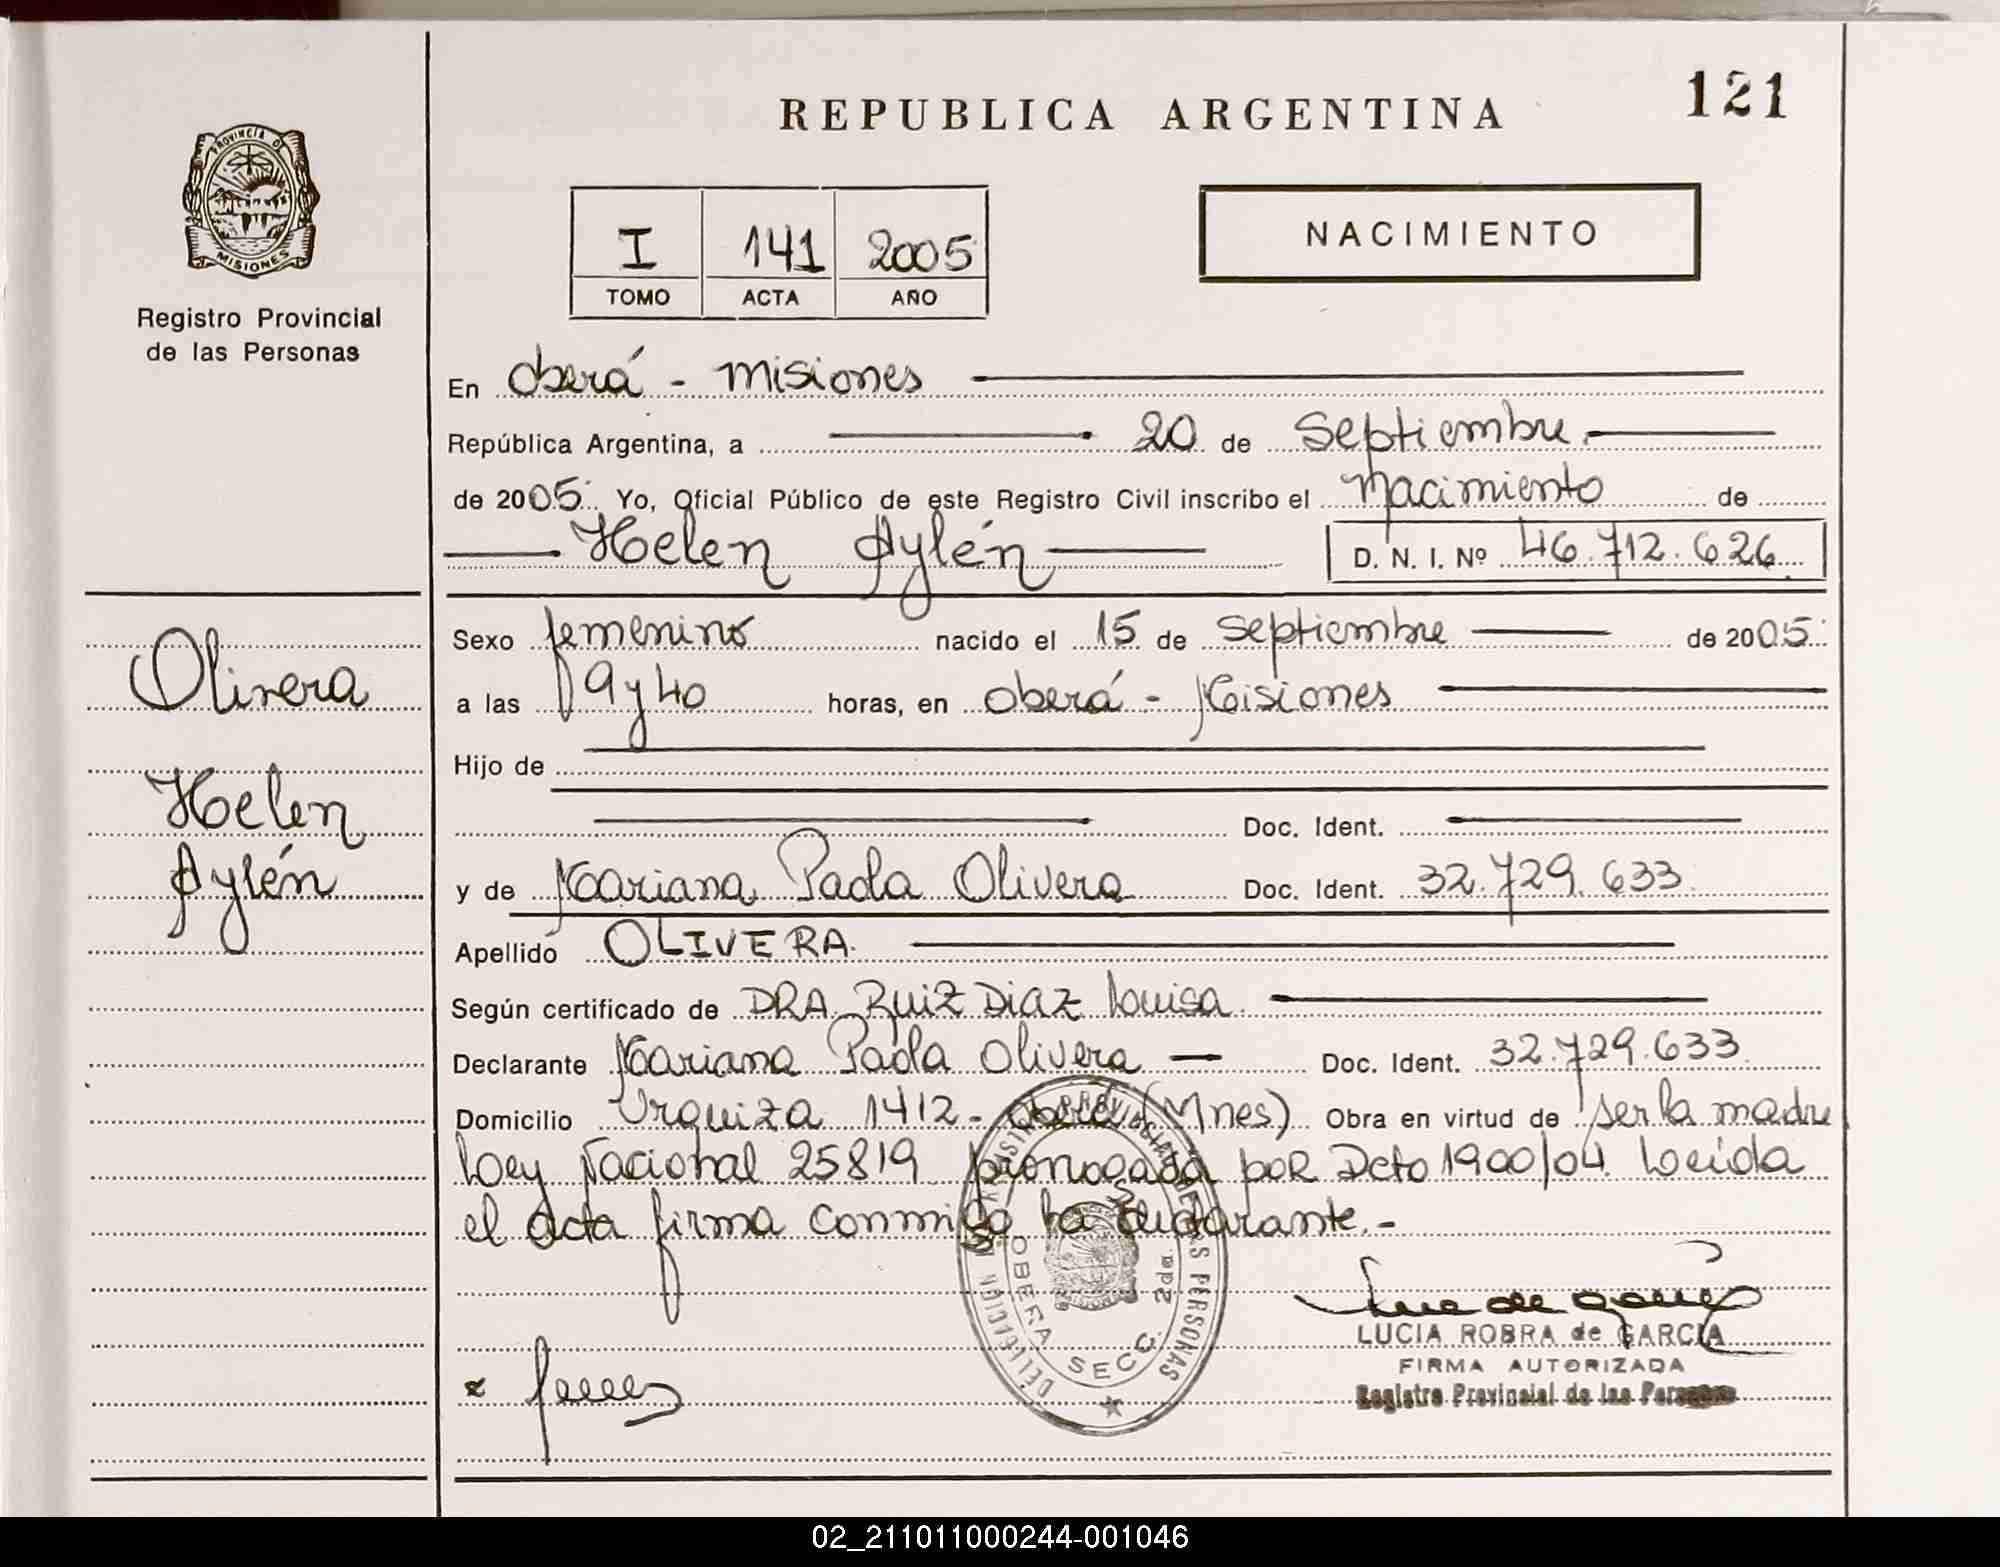 REPUBLICA ARGENTINA
121
PROVINCIA DE
MISIONES
Registro Provincial
de las Personas
I 141 2005
TOMO ACTA AÑO
NACIMIENTO
En Oberá - Misiones
República Argentina, a 20 de Septiembre.
de 2005. Yo, Oficial Público de este Registro Civil inscribo el Nacimiento de
Helen Aylén D. N. I. Nº 46.712.626
Olivera
Helen
Aylén
Sexo femenino nacido el 15 de Septiembre de 2005.
a las 19 y 40 horas, en Oberá - Misiones
Hijo de
Doc. Ident.
y de Mariana Paola Olivera Doc. Ident. 32.729.633
Apellido OLIVERA.
Según certificado de DRA. Ruiz Diaz Louisa.
Declarante Mariana Paola Olivera Doc. Ident. 32.729.633
Domicilio Urquiza 1412 - Oberá (Mnes) Obra en virtud de ser la madre
Ley Nacional 25819 prorrogada por Dcto 1900/04. Leída
el acta firma conmigo la declarante.-
DELEGACION REGISTRO PROVINCIAL DE LAS PERSONAS
OBERA SECC. 2da.
LUCIA ROBRA de GARCIA
FIRMA AUTORIZADA
Registro Provincial de las Personas
02_211011000244-001046